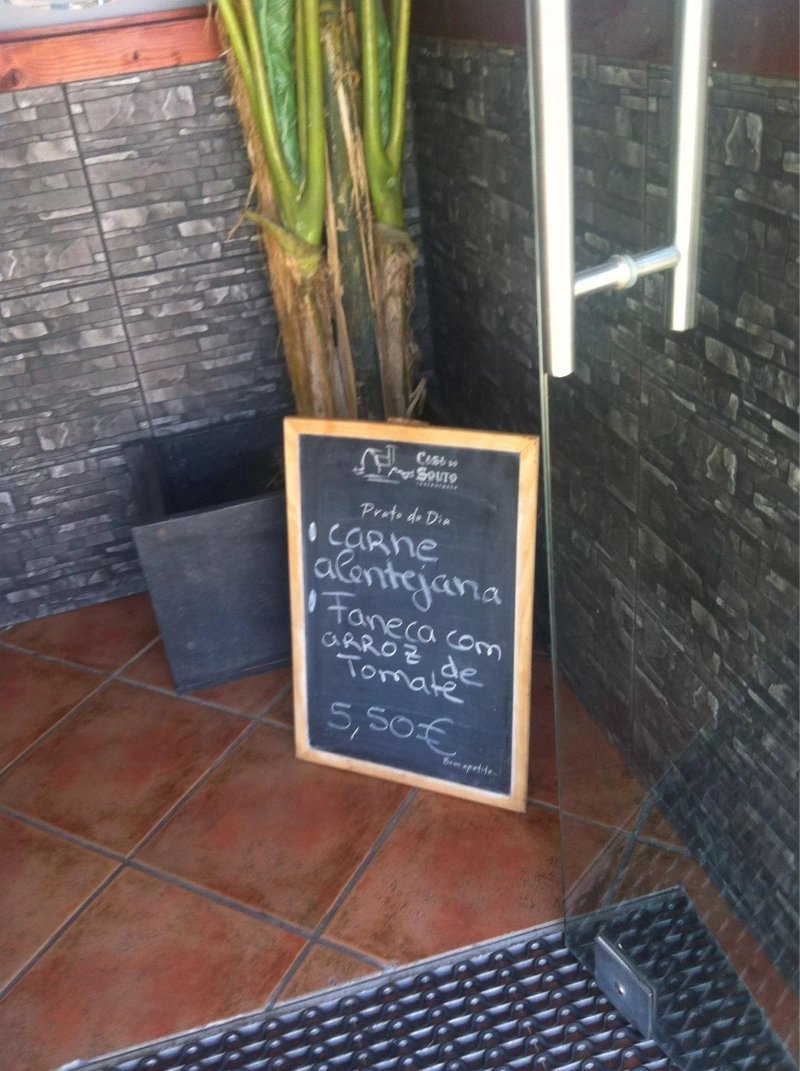 Casa do
Souto
restaurante
Prato do Dia
CARNE
alentejana
Faneca com
ARROZ de
Tomate
5,50€
Bom apetite..